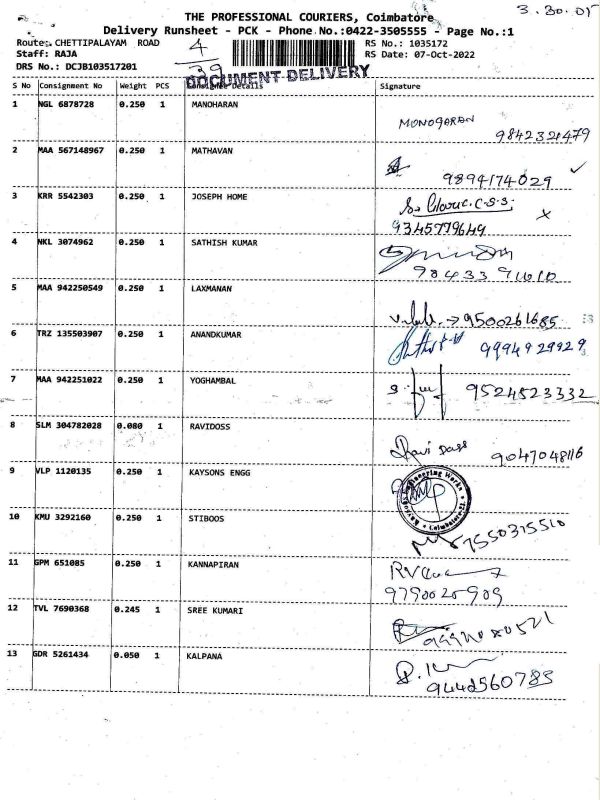 3.30.05
THE PROFESSIONAL COURIERS, Coimbatore
Delivery Runsheet - PCK - Phone No.:0422-3505555 - Page No.:1
Route: CHETTIPALAYAM ROAD 4 RS No.: 1035172
Staff: RAJA 39 RS Date: 07-Oct-2022
DRS No.: DCJB103517201 DOCUMENT DELIVERY
S No Consignment No Weight PCS Consignee Details Signature
1 NGL 6878728 0.250 1 MANOHARAN
MONOGARAN 9842321479
2 MAA 567148967 0.250 1 MATHAVAN
9894174029
3 KRR 5542303 0.250 1 JOSEPH HOME
C.S.S.
9345779649
4 NKL 3074962 0.250 1 SATHISH KUMAR
5 MAA 942250549 0.250 1 LAXMANAN
9500261685
6 TRZ 135503907 0.250 1 ANANDKUMAR
9994929929
7 MAA 942251022 0.250 1 YOGHAMBAL
9524523332
8 SLM 304782028 0.080 1 RAVIDOSS
Ravi Doss 9047048116
9 VLP 1120135 0.250 1 KAYSONS ENGG
Engineering Works
Coimbatore
10 KMU 3292160 0.250 1 STIBOOS
7550315510
11 GPM 651085 0.250 1 KANNAPIRAN
9790020909
12 TVL 7690368 0.245 1 SREE KUMARI
13 GDR 5261434 0.050 1 KALPANA
9442560783